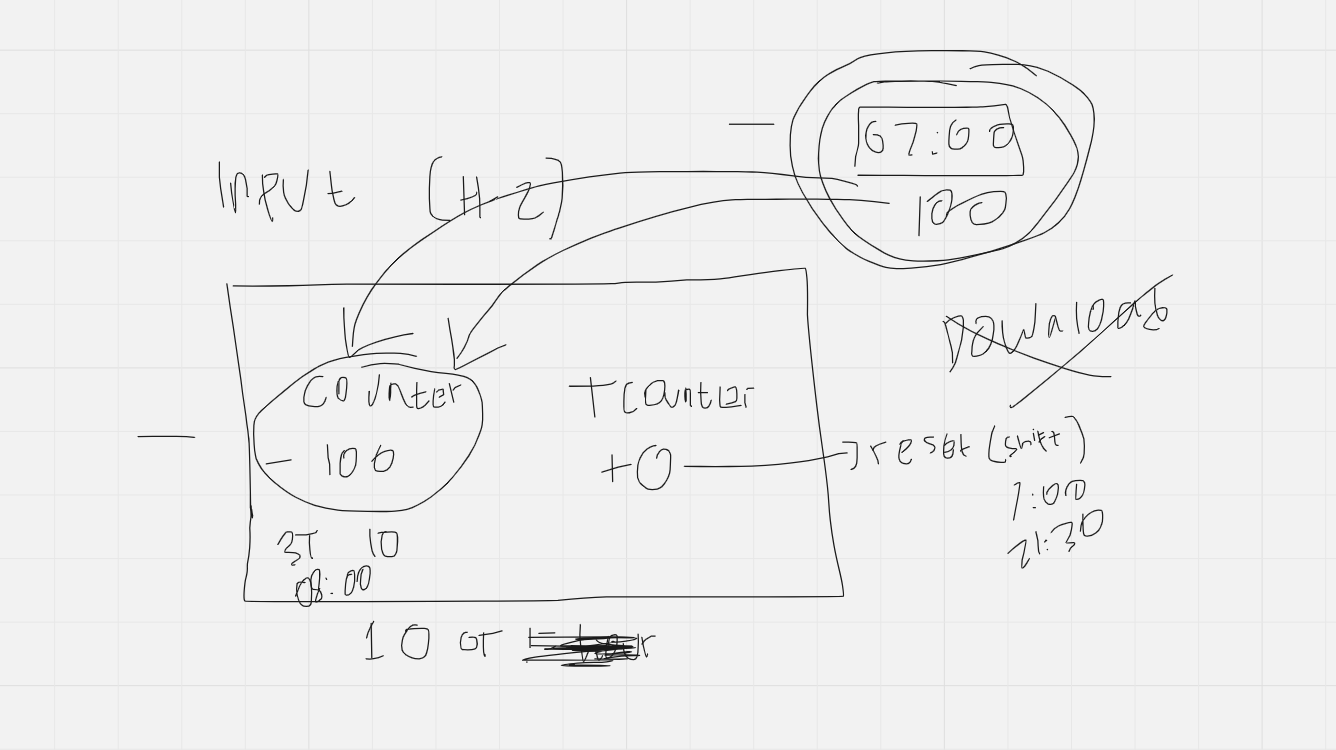 07:00
100
Input (Hz)
Download
Counter
- 100
Tcounter
+0
reset (shift)
7:00
21:30
3T 10
08:00
10 or